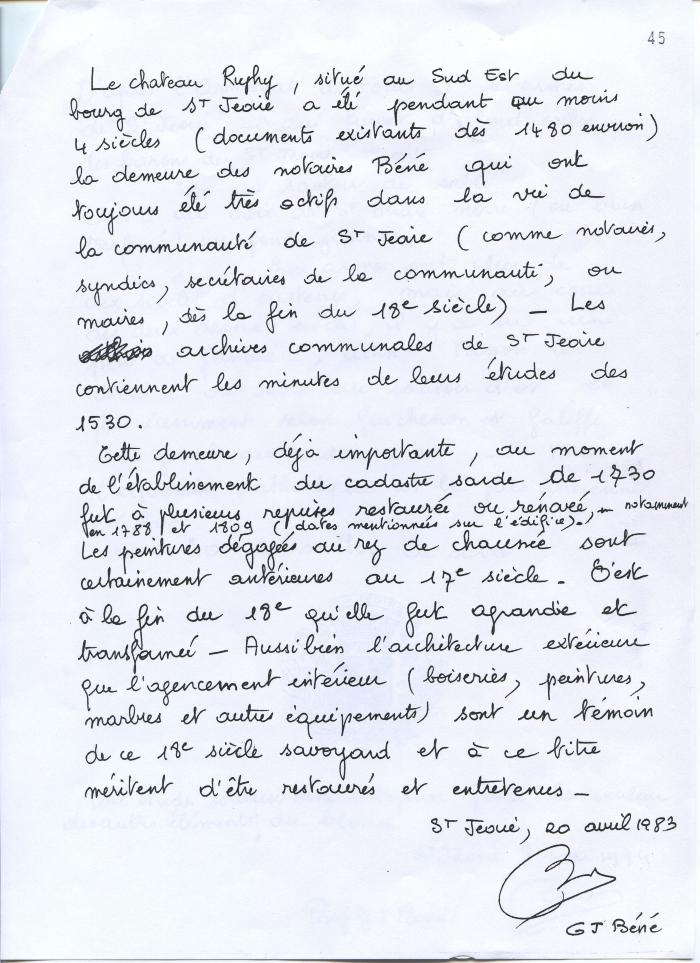 45
Le chateau Ruphy, situé au Sud Est du
bourg de St Jeoire a été pendant au moins
4 siècles (documents existants, dès 1480 environ)
la demeure des notaires Béné qui ont
toujours été très actifs dans la vie de
la communauté de St Jeoire (comme notaires,
syndics, secrétaires de la communauté, ou
maires, dès la fin du 18e siècle) – Les
archives communales de St Jeoire
contiennent les minutes de leurs études dès
1530.
Cette demeure, déjà importante, au moment
de l'établissement du cadastre sarde de 1730
fut à plusieurs reprises restaurée ou rénovée – notamment
en 1788 et 1809 (dates mentionnées sur l'édifice).
Les peintures dégagées au rez de chaussée sont
certainement antérieures au 17e siècle. C'est
à la fin du 18e qu'elle fut agrandie et
transformée – Aussi bien l'architecture extérieure
que l'agencement intérieur (boiseries, peintures,
marbres et autres équipements) sont un témoin
de ce 18e siècle savoyard et à ce titre
méritent d'être restaurés et entretenus –
St Jeoire, 20 avril 1983
GJ Béné